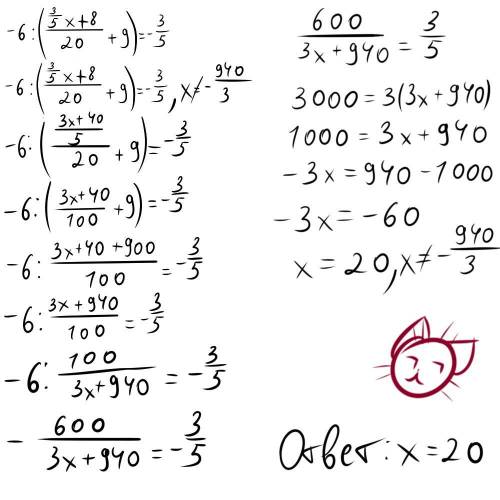 -6:((3/5x+8)/20+9)=-3/5
-6:((3/5x+8)/20+9)=-3/5, x≠-940/3
-6:(((3x+40)/5)/20+9)=-3/5
-6:((3x+40)/100+9)=-3/5
-6:(3x+40+900)/100=-3/5
-6:(3x+940)/100=-3/5
-6:100/(3x+940)=-3/5
-600/(3x+940)=-3/5
600/(3x+940)=3/5
3000=3(3x+940)
1000=3x+940
-3x=940-1000
-3x=-60
x=20, x≠-940/3
Ответ: x=20